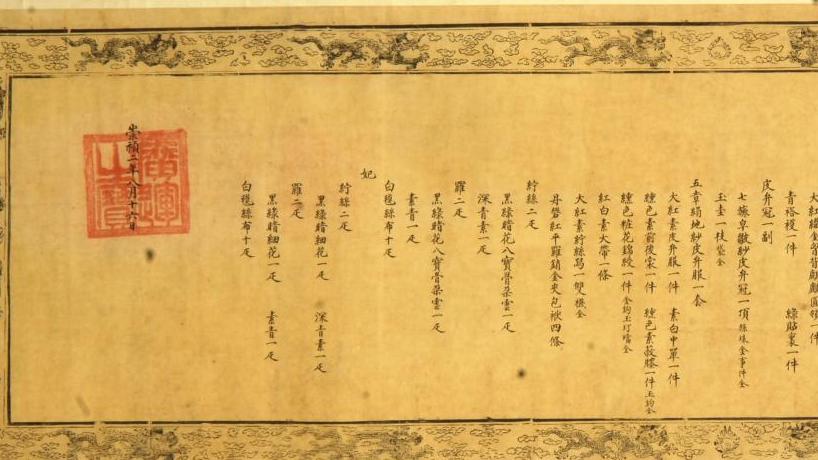 大紅織金胷背麒麟圓領一件
青褡𧞤一件 綠貼裏一件
皮弁冠一副
七旒皁皺紗皮弁冠一頂 線珠金事件全
玉圭一枝 袋全
五章絹地紗皮弁服一套
大紅素皮弁服一件 素白中單一件
纁色素前後裳一件 纁色素蔽膝一件 玉鈎全
纁色粧花錦綬一件 金鈎玉玎璫全
紅白素大帶一條
大紅素紵絲舄一雙 襪全
丹礬紅平羅銷金夾包袱四條
紵絲二疋
黑綠暗花八寶骨朵雲一疋
深青素一疋
羅二疋
黑綠暗花八寶骨朵雲一疋
素青一疋
白㲲絲布十疋
妃
紵絲二疋
黑綠暗細花一疋 深青素一疋
羅二疋
黑綠暗細花一疋 素青一疋
白㲲絲布十疋
崇禎二年八月十六日
廣運之寶